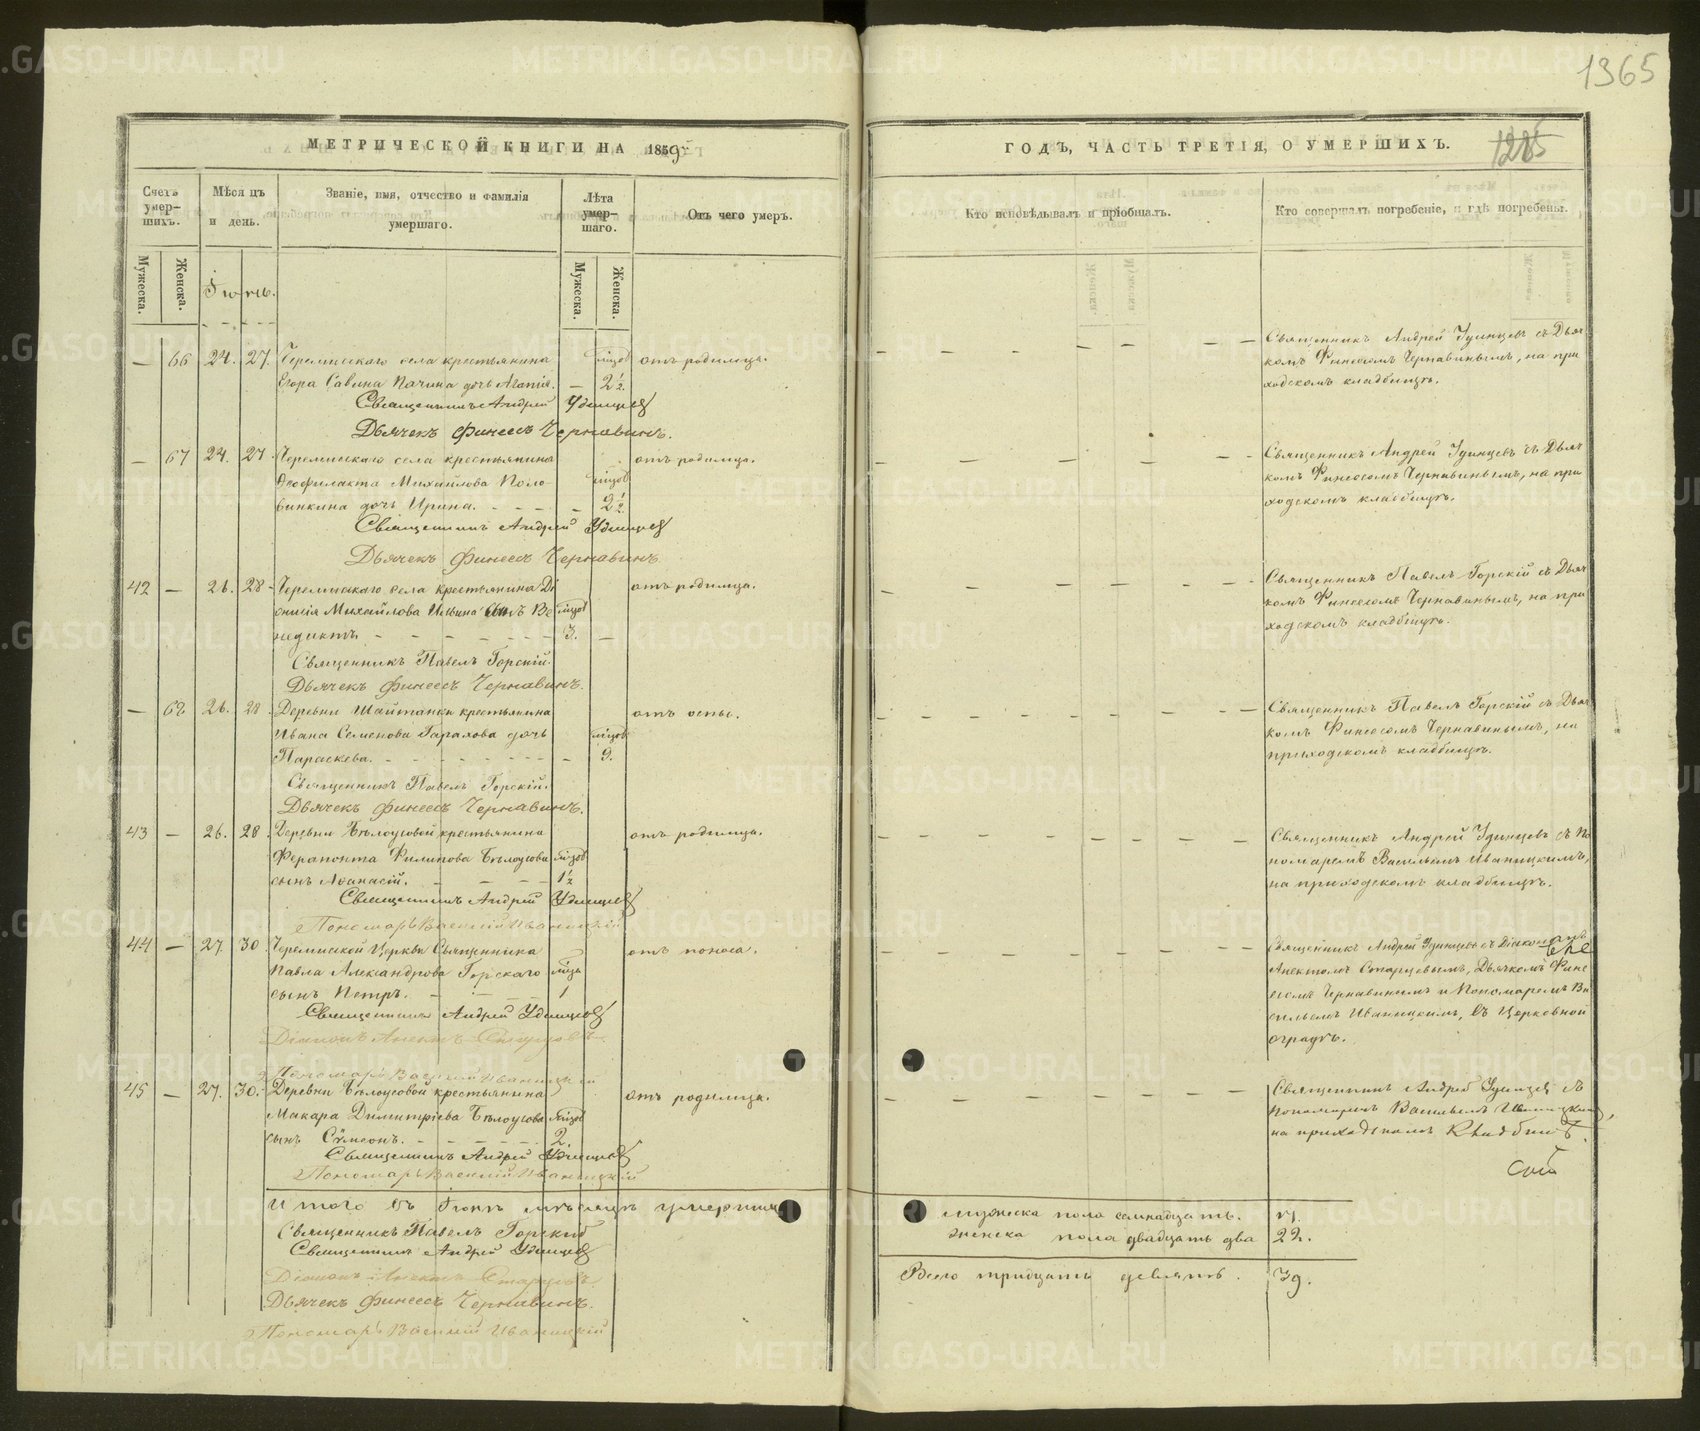 1365
МЕТРИЧЕСКОЙ КНИГИ НА 1859
Счетъ умер-шихъ.
Мѣсяцъ и день.
Званіе, имя, отчество и фамилія умершаго.
Лѣта умер-шаго.
Отъ чего умеръ.
Мужеска.
Женска.
Іюнь.
Мужеска.
Женска.
— 66 24. 27. Черемисскаго села крестьянина отъ родимца.
Егора Савина Пачина дочь Агапія. — 2 1/2
Священникъ Андрей Удинцев
Дьячекъ Финеесъ Чернавинъ.
— 67 24. 27 Черемисскаго села крестьянина отъ родимца.
Ѳеофилакта Михайлова Поло-
винкина дочь Ирина. - - - - 2 1/2
Священникъ Андрей Удинцев
Дьячекъ Финеесъ Чернавинъ
42 — 26. 28 Черемисскаго села крестьянина Ді отъ родимца.
онисія Михайлова Ильина сынъ Ве
недиктъ - - - - - - - 3. —
Священникъ Павелъ Горскій.
Дьячекъ Финеесъ Чернавинъ.
— 68 26. 28 Деревни Шайтанки крестьянина отъ оспы.
Ивана Семенова Гарахова дочь
Параскева. - - - - - - - 9.
Священникъ Павелъ Горскій.
Дьячекъ Финеесъ Чернавинъ.
43 — 26. 28. Деревни Бѣлоусовой крестьянина отъ родимца.
Ферапонта Филипова Бѣлоусова
сынъ Аѳанасій. - - - - 1 1/2
Священникъ Андрей Удинцев
Пономарь Василій Иваницкій
44 — 27. 30 Черемисской Церкви Священника отъ поноса.
Павла Александрова Горскаго
сынъ Петръ. - - - - 1
Священникъ Андрей Удинцев
Діаконъ Анектъ Старцевъ
Пономарь Василій Иваницкій
45 — 27. 30. Деревни Бѣлоусовой крестьянина отъ родимца.
Макара Димитріева Бѣлоусова
сынъ Сѵмеонъ. - - - - - 2.
Священникъ Андрей Удинцев
Пономарь Василій Иваницкій
Итого въ Іюнѣ мѣсяцѣ умерших
Священникъ Павелъ Горскій
Священникъ Андрей Удинцев
Діаконъ Анектъ Старцевъ
Дьячекъ Финеесъ Чернавинъ.
Пономарь Василій Иваницкій
ГОДЪ, ЧАСТЬ ТРЕТІЯ, О УМЕРШИХЪ.
Кто исповѣдывалъ и пріобщалъ.
Кто совершалъ погребеніе, и гдѣ погребены.
Священникъ Андрей Удинцевъ съ Дьяч
комъ Финеесомъ Чернавинымъ, на при
ходскомъ кладбищѣ.
Священникъ Андрей Удинцевъ съ Дьяч
комъ Финеесомъ Чернавинымъ, на при
ходскомъ кладбищѣ.
Священникъ Павелъ Горскій съ Дьяч
комъ Финеесомъ Чернавинымъ, на при
ходскомъ кладбищѣ.
Священникъ Павелъ Горскій съ Дьяч
комъ Финеесомъ Чернавинымъ, на
приходскомъ кладбищѣ.
Священникъ Андрей Удинцевъ съ По
номаремъ Васильемъ Иваницкимъ,
на приходскомъ кладбищѣ.
Священникъ Андрей Удинцевъ съ Діакономъ
Анектомъ Старцевымъ, Дьячкомъ Фине
есомъ Чернавинымъ и Пономаремъ Ва
сильемъ Иваницкимъ, въ Церковной
оградѣ.
Священникъ Андрей Удинцев съ
Пономаремъ Васильемъ Иваницким,
на приходскомъ кладбищѣ.
мужеска пола семнадцать. 17.
женска пола двадцать два 22.
Всего тридцать девять. 39.
METRIKI.GASO-URAL.RU